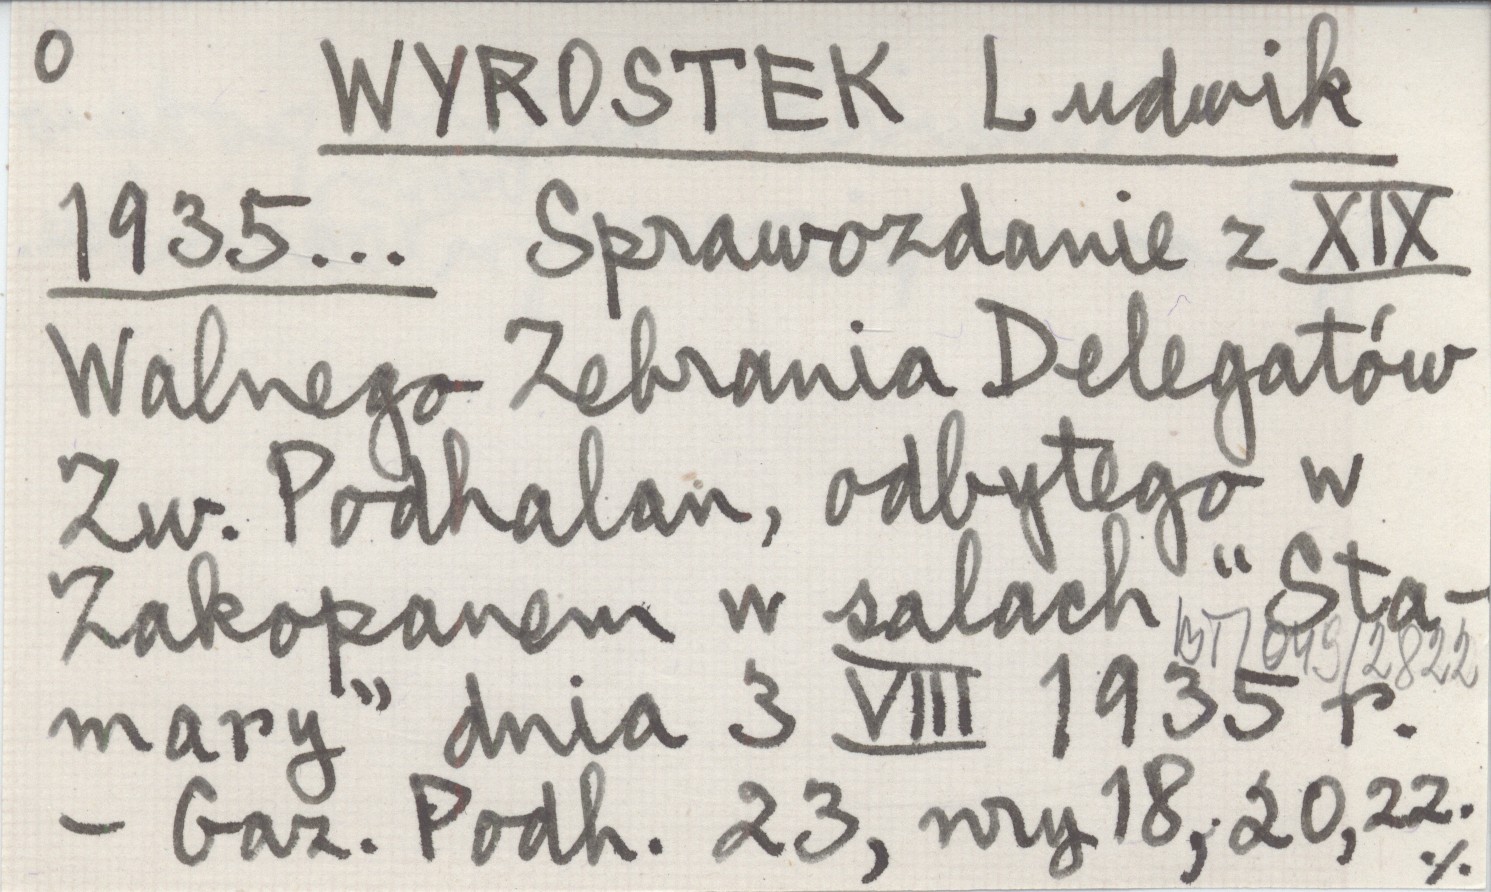 0 WYROSTEK Ludwik
1935... Sprawozdanie z XIX
Walnego Zebrania Delegatów
Zw. Podhalan, odbytego w
Zakopanem w salach "Sta-
mary" dnia 3 VIII 1935 r.
- Gaz. Podh. 23, nry 18, 20, 22.
./.